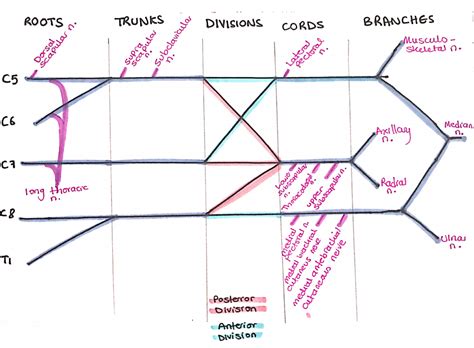 ROOTS TRUNKS DIVISIONS CORDS BRANCHES
Dorsal
scapular
n.
Supra
scapular
n.
Subclavian
n.
Lateral
pectoral
n.
Musculo-
skeletal n.
C5
C6
C7
C8
T1
long thoracic
n.
Axillary
n.
Median
n.
Radial
n.
Ulnar
n.
Lower
subscapular
n.
Thoracodorsal
n.
upper
Subscapular n.
medial
pectoral n.
medial brachial
cutaneous nerve
medial antebrachial
cutaneous nerve
Posterior
Division
Anterior
Division